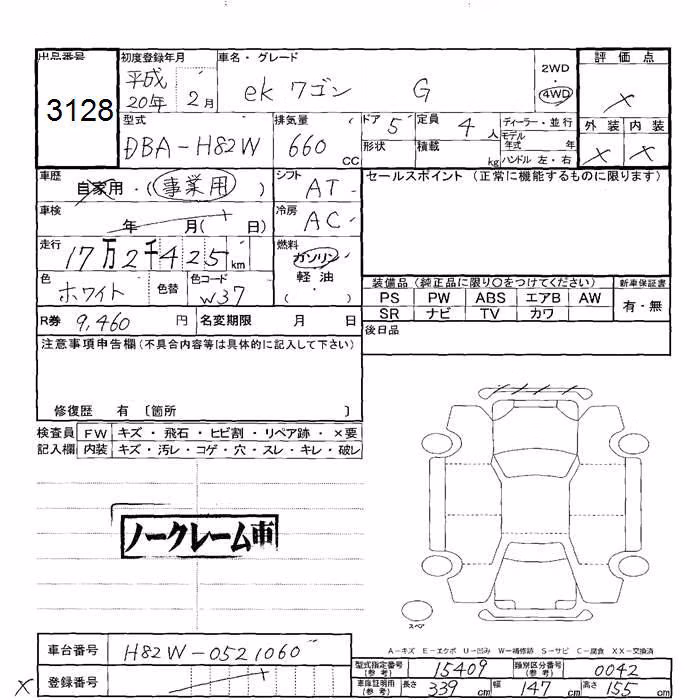 出品番号 初度登録年月 車名・グレード 評価点
3128 平成20年 2月 ek ワゴン G 2WD・4WD ×
型式 排気量 ドア 5 定員 4人 ディーラー・並行 外装 内装
DBA-H82W 660cc 形状 積載 kg モデル年式 年 × ×
ハンドル 左・右
車歴 自家用・(事業用) シフト AT セールスポイント(正常に機能するものに限ります)
車検 年 月( 日) 冷房 AC
走行 17万2千425km 燃料 ガソリン・軽油・( )
色 ホワイト 色替 色コード W37 装備品(純正品に限り○をつけてください) 新車保証書
PS PW ABS エアB AW 有・無
SR ナビ TV カワ
R券 9,460円 名変期限 月 日 後日品
注意事項申告欄(不具合内容等は具体的に記入して下さい)
修復歴 有 〔箇所 〕
検査員 FW キズ・飛石・ヒビ割・リペア跡・×要
記入欄 内装 キズ・汚レ・コゲ・穴・スレ・キレ・破レ
ノークレーム車
スペア
A-キズ E-エクボ U-凹み W-補修跡 S-サビ C-腐食 XX-交換済
車台番号 H82W-0521060 型式指定番号(参考) 15409 類別区分番号(参考) 0042
× 登録番号 車庫証明用(参考) 長さ 339cm 幅 147cm 高さ 155cm